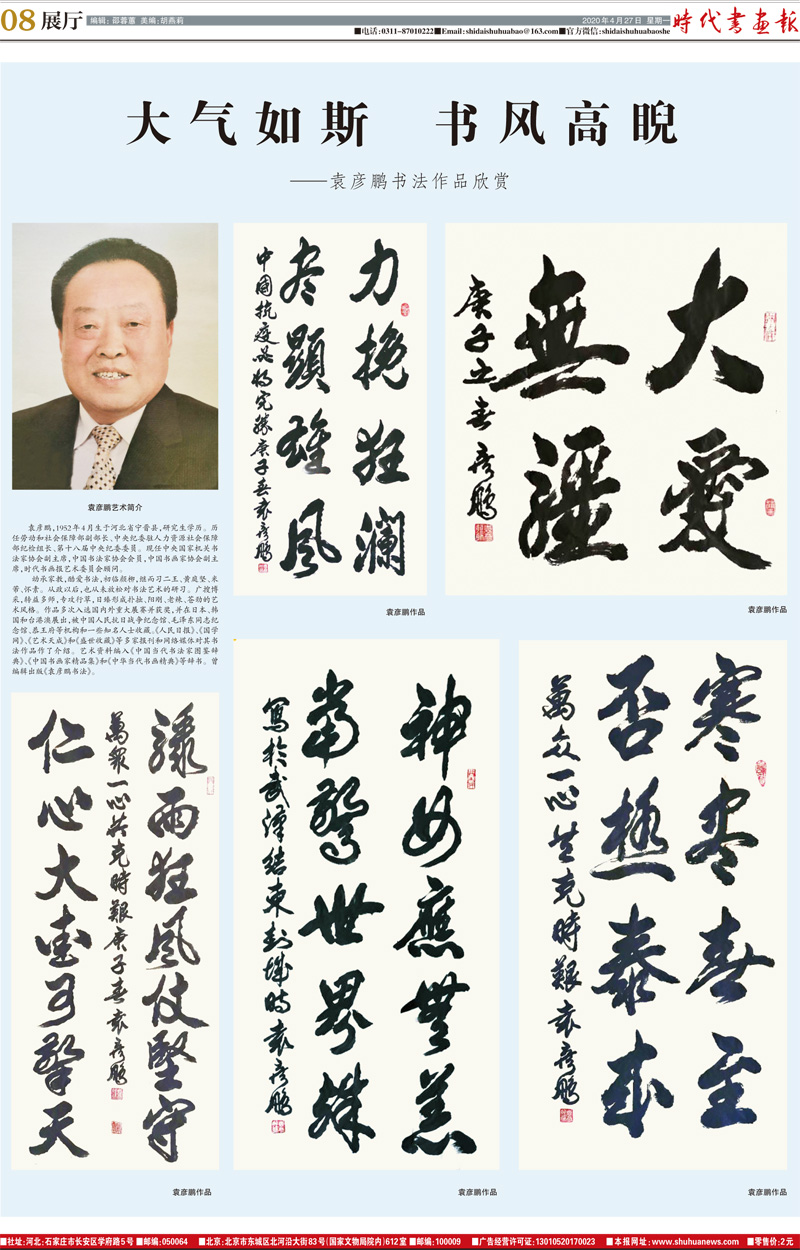 08 展厅
编辑：邵蓉蕙 美编：胡燕莉
2020年4月27日 星期一
时代书画报
■电话:0311-87010222■Email:shidaishuhuabao@163.com■官方微信:shidaishuhuabaoshe
大气如斯 书风高睨
——袁彦鹏书法作品欣赏
袁彦鹏艺术简介
袁彦鹏,1952年4月生于河北省宁晋县,研究生学历。历
任劳动和社会保障部副部长、中央纪委驻人力资源社会保障
部纪检组长、第十八届中央纪委委员。现任中央国家机关书
法家协会副主席,中国书法家协会会员,中国书画家协会副主
席,时代书画报艺术委员会顾问。
幼承家教,酷爱书法,初临颜柳,继而习二王、黄庭坚、米
芾、怀素。从政以后,也从未放松对书法艺术的研习。广搜博
采,转益多师,专攻行草,日臻形成朴拙、阳刚、老辣、苍劲的艺
术风格。作品多次入选国内外重大展赛并获奖,并在日本、韩
国和台港澳展出,被中国人民抗日战争纪念馆、毛泽东同志纪
念馆、恭王府等机构和一些知名人士收藏。《人民日报》、《国学
网》、《艺术天成》和《盛世收藏》等多家报刊和网络媒体对其书
法作品作了介绍。艺术资料编入《中国当代书法家图鉴辞
典》、《中国书画家精品集》和《中华当代书画精典》等辞书。曾
编辑出版《袁彦鹏书法》。
力挽狂澜
尽顯雄風
中國抗疫必将完勝庚子春袁彦鹏
袁彦鹏作品
大愛
無疆
庚子之春 彦鹏
袁彦鹏作品
骤雨狂風仗堅守
萬衆一心共克時艱庚子春袁彦鹏
仁心大爱可擎天
袁彦鹏作品
神女應無恙
當驚世界殊
寫於武漢結束封城時袁彦鹏
袁彦鹏作品
寒尽春主
否極泰來
萬众一心共克時艱袁彦鹏
袁彦鹏作品
■社址:河北:石家庄市长安区学府路5号■邮编:050064 ■北京:北京市东城区北河沿大街83号(国家文物局院内)612室■邮编:100009 ■广告经营许可证:13010520170023 ■本报网址:www.shuhuanews.com ■零售价:2元